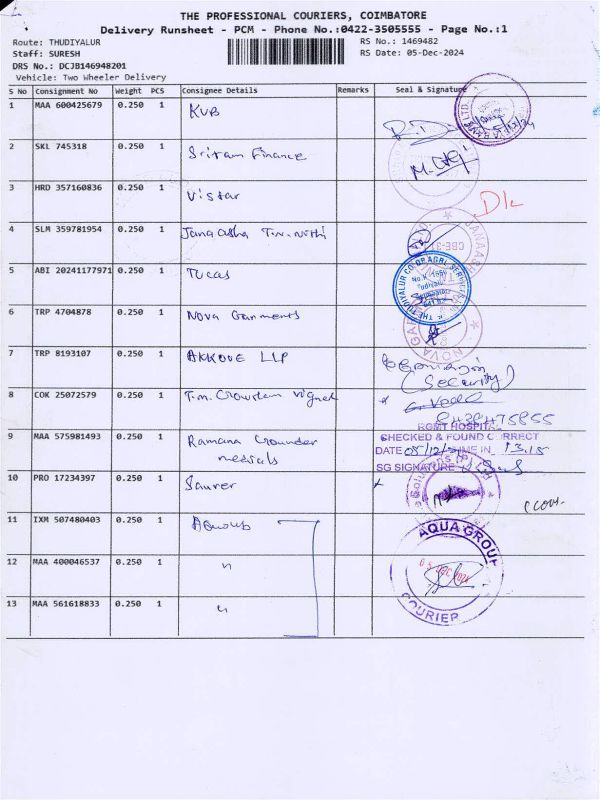 THE PROFESSIONAL COURIERS, COIMBATORE
Delivery Runsheet - PCM - Phone No.:0422-3505555 - Page No.:1
Route: THUDIYALUR RS No.: 1469482
Staff: SURESH RS Date: 05-Dec-2024
DRS No.: DCJB146948201
Vehicle: Two Wheeler Delivery
S No Consignment No Weight PCS Consignee Details Remarks Seal & Signature
1 MAA 600425679 0.250 1 KVB
2 SKL 745318 0.250 1 Sriram Finance
3 HRD 357160836 0.250 1 Vistar
4 SLM 359781954 0.250 1 Janaatha T.m. Nithi
5 ABI 20241177971 0.250 1 Tucas
6 TRP 4704878 0.250 1 Nova Garments
7 TRP 8193107 0.250 1 AKKOVE LLP
(Security)
8 COK 25072579 0.250 1
8438475855
9 MAA 575981493 0.250 1 Ramana Gounder
medicals
RGMT HOSPITAL
CHECKED & FOUND CORRECT
DATE 05/12/ TIME IN 13.15
SG SIGNATURE
10 PRO 17234397 0.250 1
11 IXM 507480403 0.250 1
AQUA GROUP
12 MAA 400046537 0.250 1 "
05 DEC 2024
13 MAA 561618833 0.250 1 "
COURIER